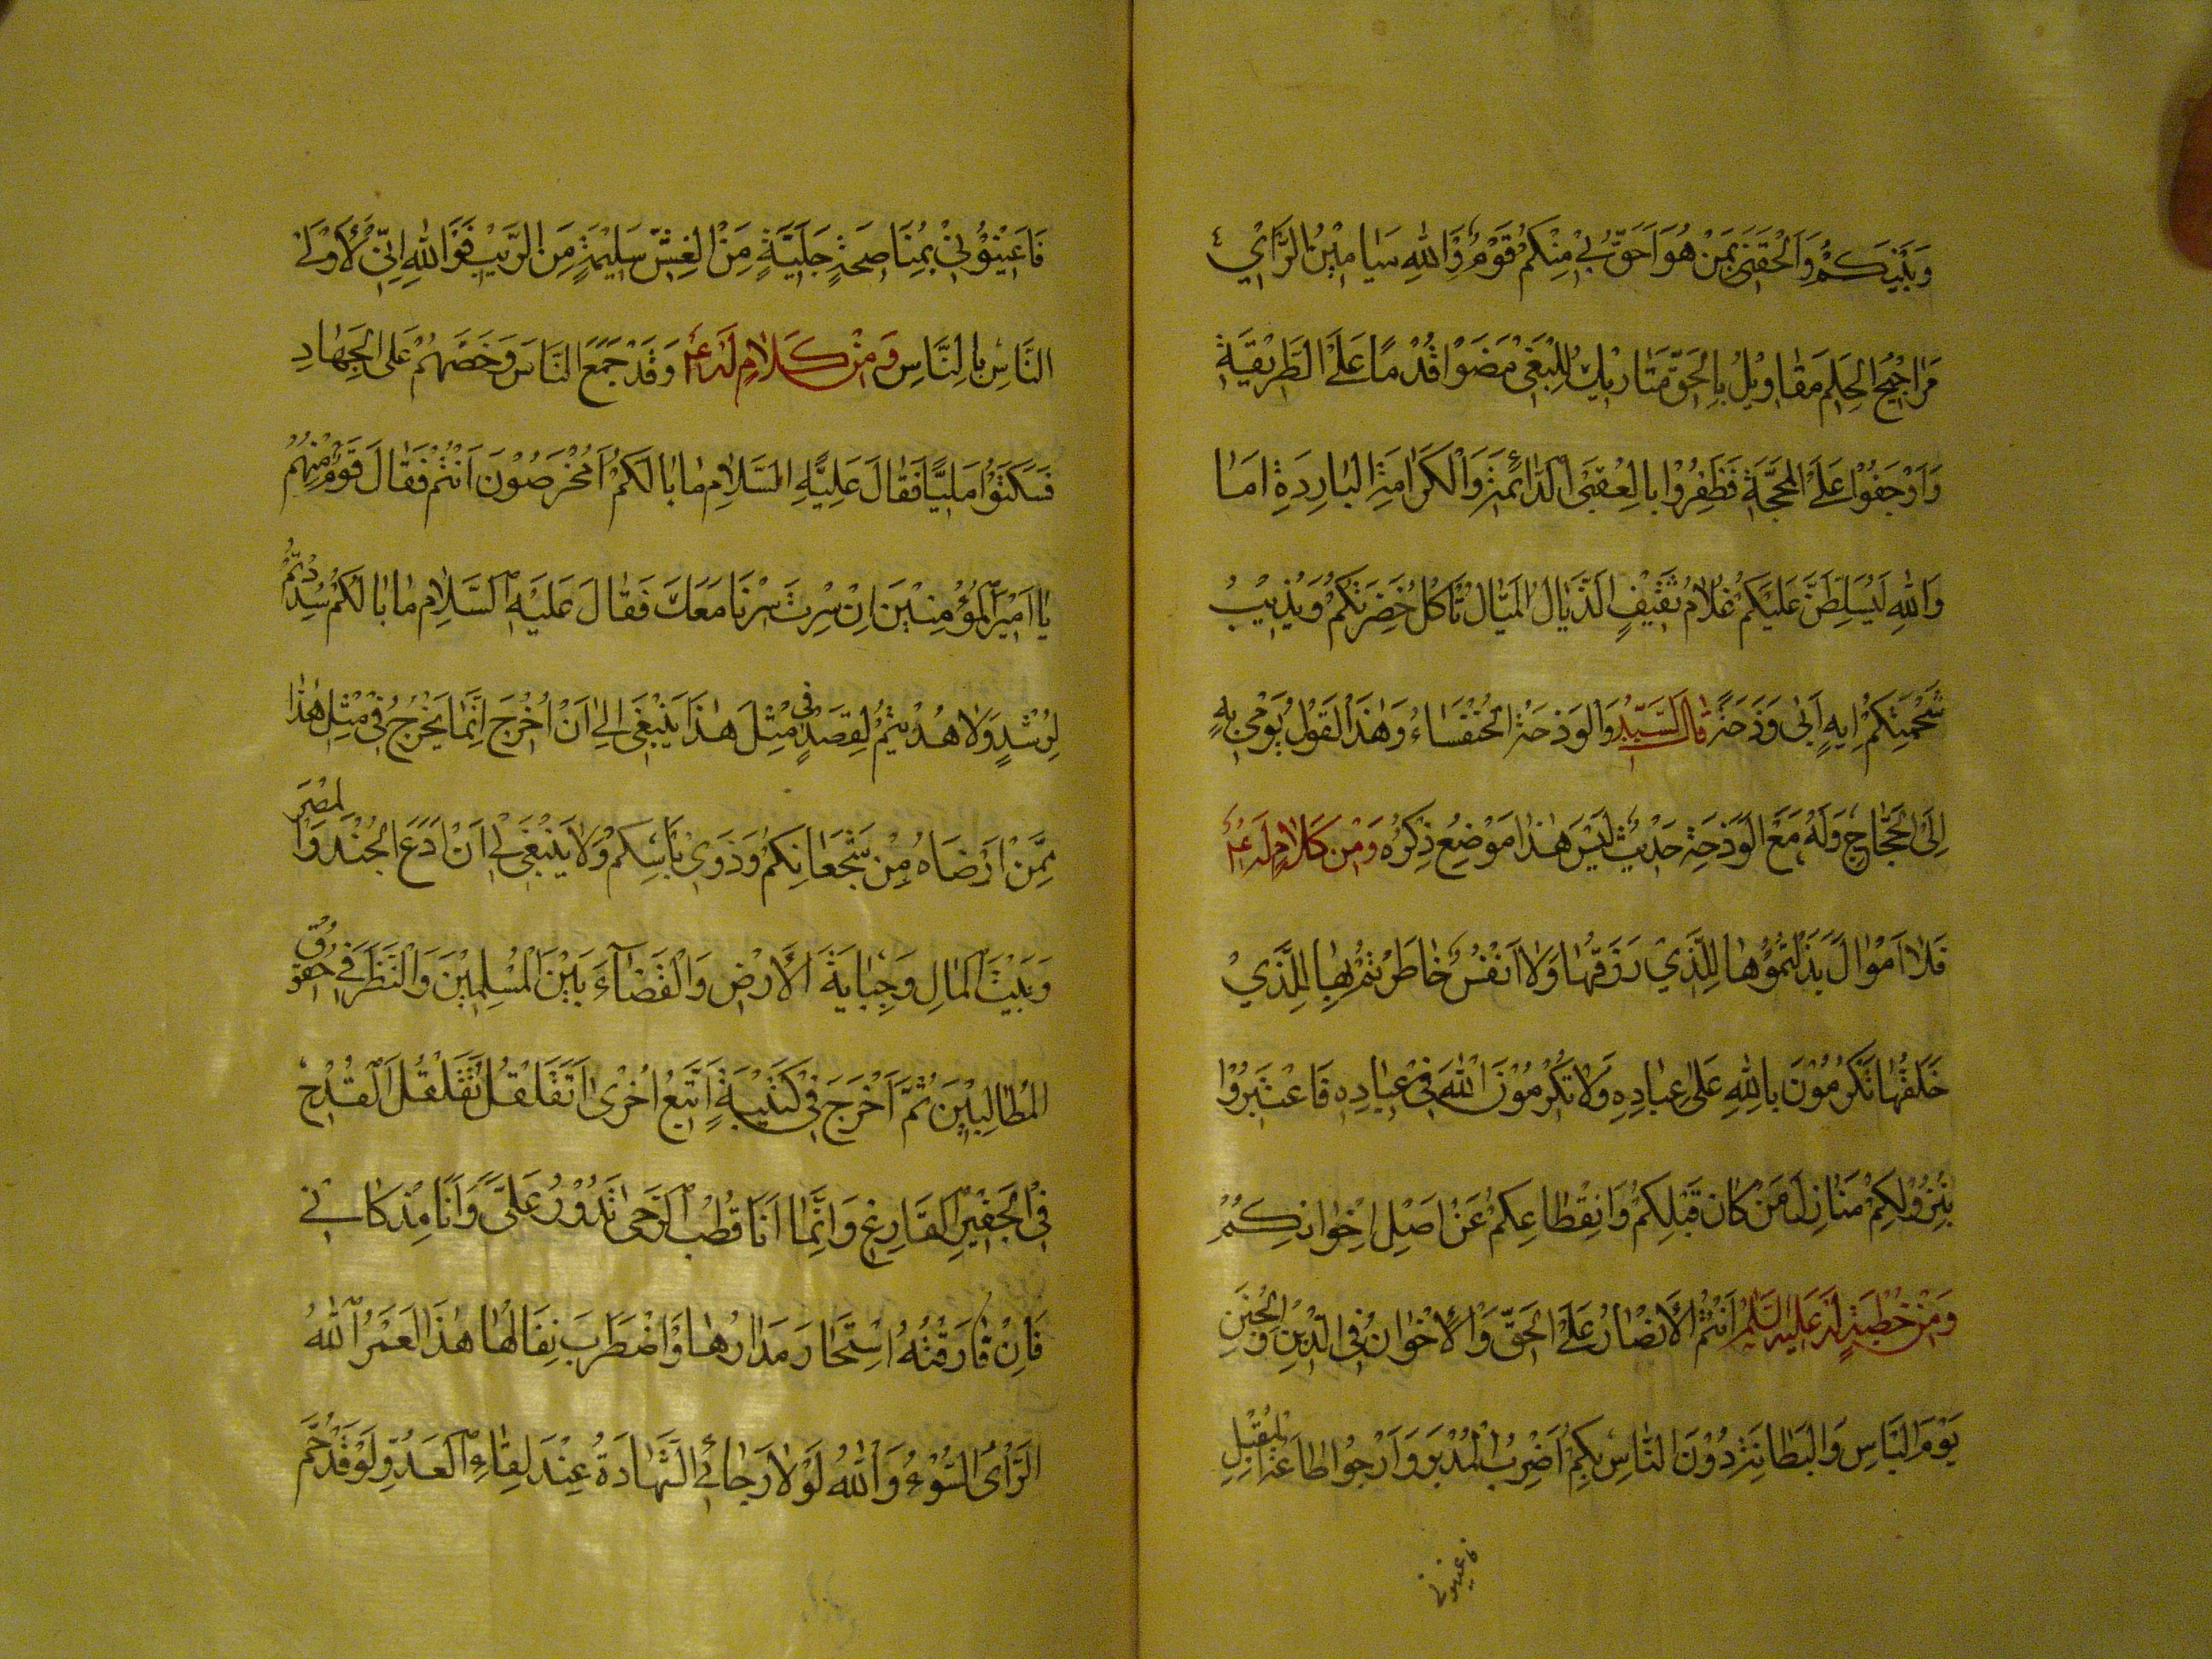 وَبَيْنَكُمْ وَاَلْحَقَنِىْ بِمَنْ هُوَ اَحَقُّ بِىْ مِنْكُمْ قَوْمٌ وَاللّٰهِ مَيَامِيْنُ الرَّاْىِ
مَرَاجِيْحُ الْحِلْمِ مَقَاوِيْلُ بِالْحَقِّ مَتَارِيْكُ لِلْبَغْىِ مَضَوْا قُدْمًا عَلَى الطَّرِيْقَةِ
وَاَوْجَفُوْا عَلَى الْمَحَجَّةِ فَظَفِرُوْا بِالْعُقْبَى الدَّائِمَةِ وَالْكَرَامَةِ الْبَارِدَةِ اَمَا
وَاللّٰهِ لَيُسَلَّطَنَّ عَلَيْكُمْ غُلَامُ ثَقِيْفٍ الذَّيَّالُ الْمَيَّالُ تَاْكُلُ خَضِرَتَكُمْ وَيُذِيْبُ
شَحْمَتَكُمْ اِيْهٍ اَبٰى وَذَحَةَ قَالَ السَّيِّدُ وَالْوَذَحَةُ الْخُنْفَسَاءُ وَهٰذَا الْقَوْلُ يُوْمِىْ بِهٖ
اِلَى الْحَجَّاجِ وَلَهُ مَعَ الْوَذَحَةِ حَدِيْثٌ لَيْسَ هٰذَا مَوْضِعَ ذِكْرِهِ وَمِنْ كَلَامٍ لَهُ عۭ
فَلَا اَمْوَالَ بَذَلْتُمُوْهَا لِلَّذِىْ رَزَقَهَا وَلَا اَنْفُسَ خَاطَرْتُمْ بِهَا لِلَّذِىْ
خَلَقَهَا تَكْرُمُوْنَ بِاللّٰهِ عَلٰى عِبَادِهِ وَلَا تُكْرِمُوْنَ اللّٰهَ فِىْ عِبَادِهِ فَاعْتَبِرُوْا
بِنُزُوْلِكُمْ مَنَازِلَ مَنْ كَانَ قَبْلَكُمْ وَانْقِطَاعِكُمْ عَنْ اَصْلِ اِخْوَانِكُمْ
وَمِنْ خُطْبَةٍ لَهُ عَلَيْهِ السَّلَمُ اَنْتُمُ الْاَنْصَارُ عَلَى الْحَقِّ وَالْاِخْوَانُ فِى الدِّيْنِ وَالْجُنَنِ
يَوْمَ الْبَاسِ وَالْبِطَانَةُ دُوْنَ النَّاسِ بِكُمْ اَضْرِبُ الْمُدْبِرَ وَاَرْجُوْا طَاعَةَ الْمُقْبِلِ
فاعينونى
فَاَعِيْنُوْنِىْ بِمُنَاصَحَةٍ جَلِيَّةٍ مِنَ الْغِشِّ سَلِيْمَةٍ مِنَ الرَّيْبِ فَوَاللّٰهِ اِنِّىْ لَاَوْلَى
النَّاسِ بِالنَّاسِ وَمِنْ كَلَامٍ لَهُ عۭ وَقَدْ جَمَعَ النَّاسَ وَحَضَّهُمْ عَلَى الْجِهَادِ
فَسَكَتُوْا مَلِيًّا فَقَالَ عَلَيْهِ السَّلَامِ مَا بَالَكُمْ اَمُخْرَصُوْنَ اَنْتُمْ فَقَالَ قَوْمٌ مِنْهُمْ
يَا اَمِيْرَ الْمُؤْمِنِيْنَ اِنْ سِرْتَ سِرْنَا مَعَكَ فَقَالَ عَلَيْهِ السَّلَامِ مَا بَالَكُمْ سُدِّدْتُمْ
لِرُشْدٍ وَلَا هُدِيْتُمْ لِقَصْدٍ فِىْ مِثْلِ هٰذَا يَنْبَغِىْ اِلٰى اَنْ اَخْرُجَ اِنَّمَا يَخْرُجُ فِىْ مِثْلِ هٰذَا
مِمَّنْ اَرْضَاهُ مِنْ شُجْعَانِكُمْ وَذَوِىْ بَاْسِكُمْ وَلَا يَنْبَغِىْ لِىْ اَنْ اَدَعَ الْجُنْدَ وَالْمِصْرَ
وَبَيْتَ الْمَالِ وَجِبَايَةَ الْاَرْضِ وَالْقَضَآءَ بَيْنَ الْمُسْلِمِيْنَ وَالنَّظَرَ فِىْ حُقُوْقِ
الْمُطَالِبِيْنَ ثُمَّ اَخْرُجَ فِىْ كَتِيْبَةٍ اَتَّبِعُ اُخْرٰى اَتَقَلْقَلُ تَقَلْقُلَ الْقُدْحِ
فِى الْجَفِيْرِ الْفَارِغِ وَاِنَّمَا اَنَا قُطْبُ الرَّحٰى تَدُوْرُ عَلَىَّ وَاَنَا مِذْكَانِىْ
فَاِنْ فَارَقْتُهُ اسْتَحَارَ مَدَارُهَا وَاضْطَرَبَ ثِفَالُهَا هٰذَا لَعَمْرُ اللّٰهِ
الرَّاْىُ السُّوْءُ وَاللّٰهُ لَوْلَا رَجَائِى الشَّهَادَةُ عِنْدَ لِقَاءِ الْعَدُوِّ لَوْ قَدْ حُمَّ